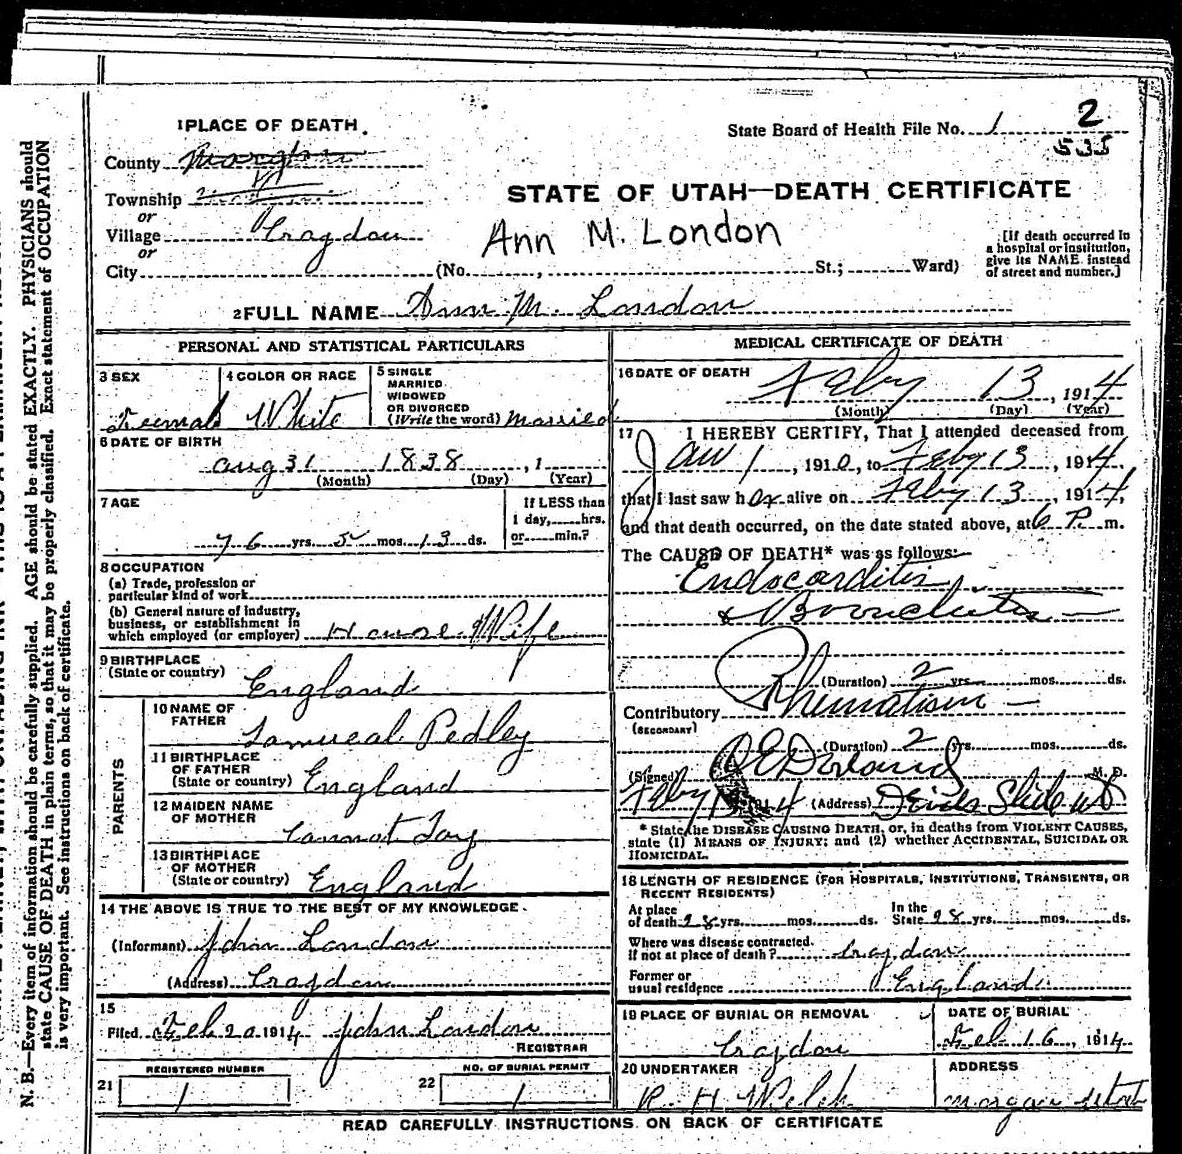 1 PLACE OF DEATH.
State Board of Health File No. 1 2
535
County Morgan
Township
or
Village Cragdon
or
City (No. , St.; Ward)
STATE OF UTAH—DEATH CERTIFICATE
Ann M. London
[If death occurred in
a hospital or institution,
give its NAME instead
of street and number.]
2 FULL NAME Ann M. London
PERSONAL AND STATISTICAL PARTICULARS
3 SEX
Feemale
4 COLOR OR RACE
White
5 SINGLE
MARRIED
WIDOWED
OR DIVORCED
(Write the word) married
6 DATE OF BIRTH
Aug 31 1838, 1
(Month) (Day) (Year)
7 AGE
76 yrs. 5 mos. 13 ds.
If LESS than
1 day, hrs.
or min.?
8 OCCUPATION
(a) Trade, profession or
particular kind of work
(b) General nature of industry,
business, or establishment in
which employed (or employer) House Wife
9 BIRTHPLACE
(State or country)
England
PARENTS
10 NAME OF
FATHER
Samueal Pedley
11 BIRTHPLACE
OF FATHER
(State or country) England
12 MAIDEN NAME
OF MOTHER
13 BIRTHPLACE
OF MOTHER
(State or country) England
14 THE ABOVE IS TRUE TO THE BEST OF MY KNOWLEDGE
(Informant) John London
(Address) Cragdon
15
Filed Feb 20 1914 John London
REGISTRAR
21 REGISTERED NUMBER
1
22 NO. OF BURIAL PERMIT
1
MEDICAL CERTIFICATE OF DEATH
16 DATE OF DEATH
Feby 13, 1914
(Month) (Day) (Year)
17 I HEREBY CERTIFY, That I attended deceased from
Jan 1, 1910, to Feby 13, 1914,
that I last saw her alive on Feby 13, 1914,
and that death occurred, on the date stated above, at 6 P. m.
The CAUSE OF DEATH* was as follows:
Endocarditis
& Bronchitis
(Duration) 2 yrs. mos. ds.
Contributory Rhumatism
(SECONDARY)
(Duration) 2 yrs. mos. ds.
(Signed) M. D.
Feby 1914 (Address) Devils Slide Ut
* State the DISEASE CAUSING DEATH, or, in deaths from VIOLENT CAUSES,
state (1) MEANS OF INJURY; and (2) whether ACCIDENTAL, SUICIDAL OR
HOMICIDAL.
18 LENGTH OF RESIDENCE (FOR HOSPITALS, INSTITUTIONS, TRANSIENTS, OR
RECENT RESIDENTS)
At place
of death 28 yrs. mos. ds.
In the
State 28 yrs. mos. ds.
Where was disease contracted.
If not at place of death? Cragdon
Former or
usual residence England
19 PLACE OF BURIAL OR REMOVAL
Cragdon
DATE OF BURIAL
Feb 16, 1914
20 UNDERTAKER
R. H. Welch
ADDRESS
Morgan Utah
READ CAREFULLY INSTRUCTIONS ON BACK OF CERTIFICATE
N. B.—Every item of information should be carefully supplied. AGE should be stated EXACTLY. PHYSICIANS should
state CAUSE OF DEATH in plain terms, so that it may be properly classified. Exact statement of OCCUPATION
is very important. See instructions on back of certificate.